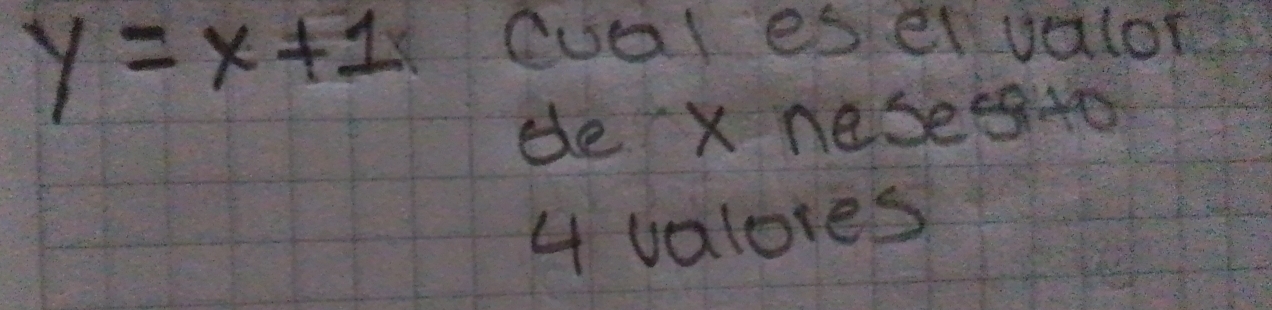 y = x + 1 Cual es el valor
de x nesesito
4 valores